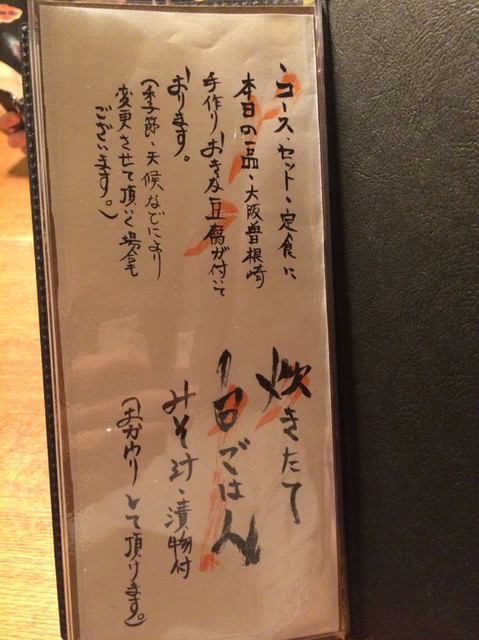 、コース・セット・定食に
本日の一品・大阪曽根崎
手作りおきな豆腐が付いて
おります。
(季節・天候などにより
変更させて頂く場合も
ございます。)
炊きたて
白ごはん
みそ汁・漬物付
(おかわりして頂けます。)